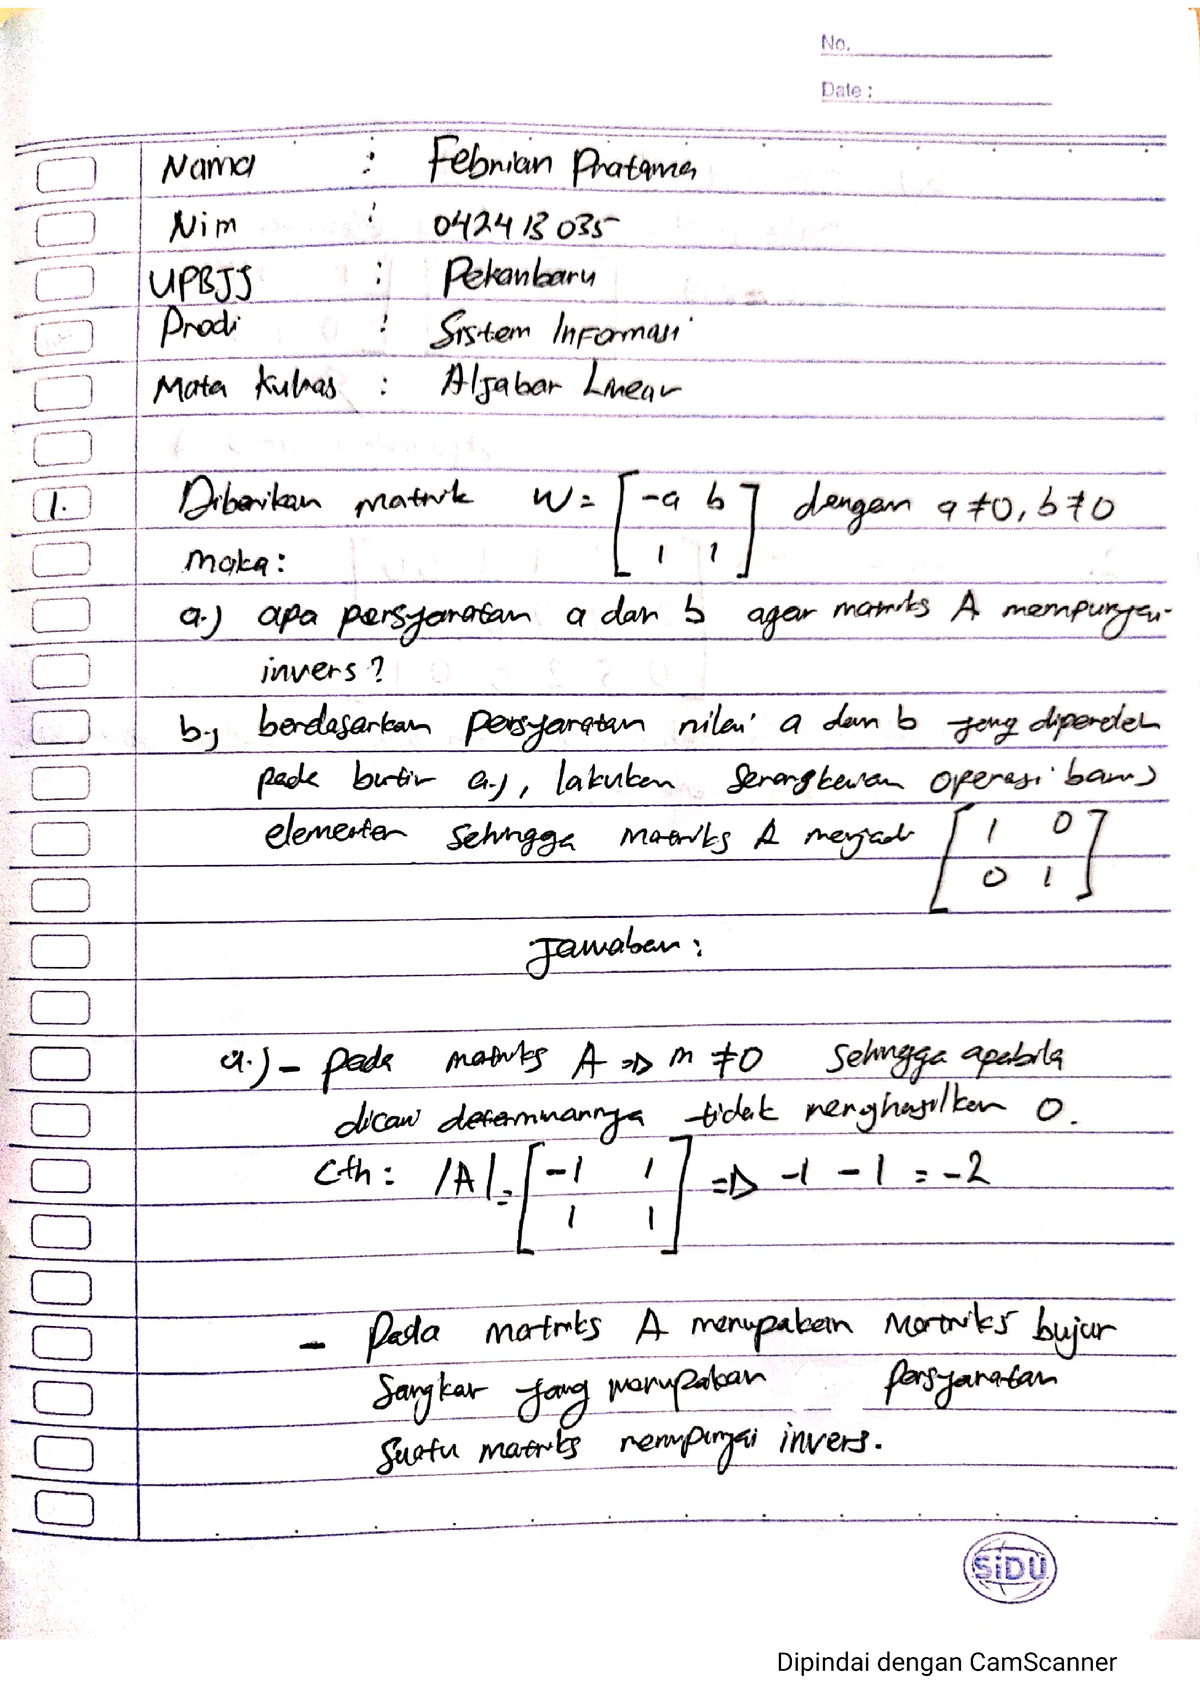 No.
Date :
Nama : Febrian Pratama
Nim : 042413035
UPBJJ : Pekanbaru
Prodi : Sistem Informasi
Mata Kulias : Aljabar Linear
1. Diberikan matrik W = [ -a b ] dengan a ≠ 0, b ≠ 0
maka: [ 1 1 ]
a.) apa persyaratan a dan b agar matriks A mempunyai
invers?
b.) berdasarkan persyaratan nilai a dan b yang diperoleh
pada butir a.), lakukan serangkaian operasi baris
elementer sehingga matriks A menjadi [ 1 0 ]
[ 0 1 ]
Jawaban :
a.) - pada matriks A => m ≠ 0 sehingga apabila
dicari determinannya tidak menghasilkan 0.
Cth : |A| = [ -1 1 ] => -1 - 1 = -2
[ 1 1 ]
- Pada matriks A merupakan Matriks bujur
sangkar yang merupakan persyaratan
suatu matriks mempunyai invers.
SiDU
Dipindai dengan CamScanner